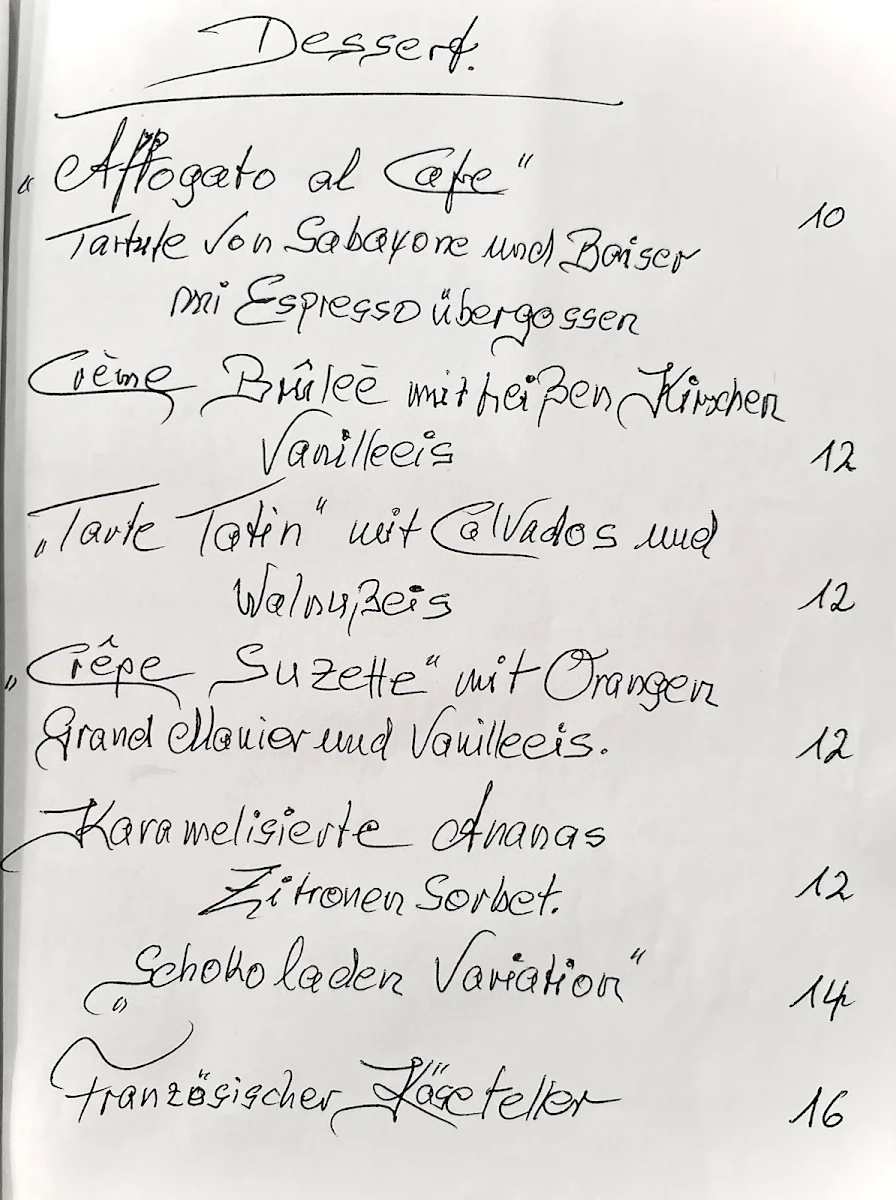 Dessert.
"Affogato al Cafe" 10
Tartufe von Sabayone und Baiser
mi Espresso übergossen
Crème Brûleé mit heißen Kirschen
Vanilleeis 12
"Tarte Tatin" mit Calvados und
Walnußeis 12
"Crêpe Suzette" mit Orangen
Grand Manier und Vanilleeis. 12
Karamelisierte Ananas
Zitronen Sorbet. 12
"Schokoladen Variation" 14
Französischer Käseteller 16